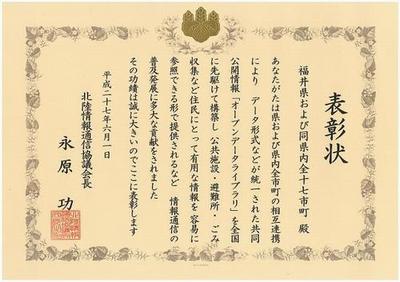 表彰状
福井県および同県内全十七市町 殿
あなたがたは県および県内全市町の相互連携
により データ形式などが統一された共同
公開情報「オープンデータライブラリ」を全国
に先駆けて構築し 公共施設・避難所・ごみ
収集など住民にとって有用な情報を 容易に
参照できる形で提供されるなど 情報通信の
普及発展に多大な貢献をされました
その功績は誠に大きいのでここに表彰します
平成二十七年六月一日
北陸情報通信協議会長
永原 功